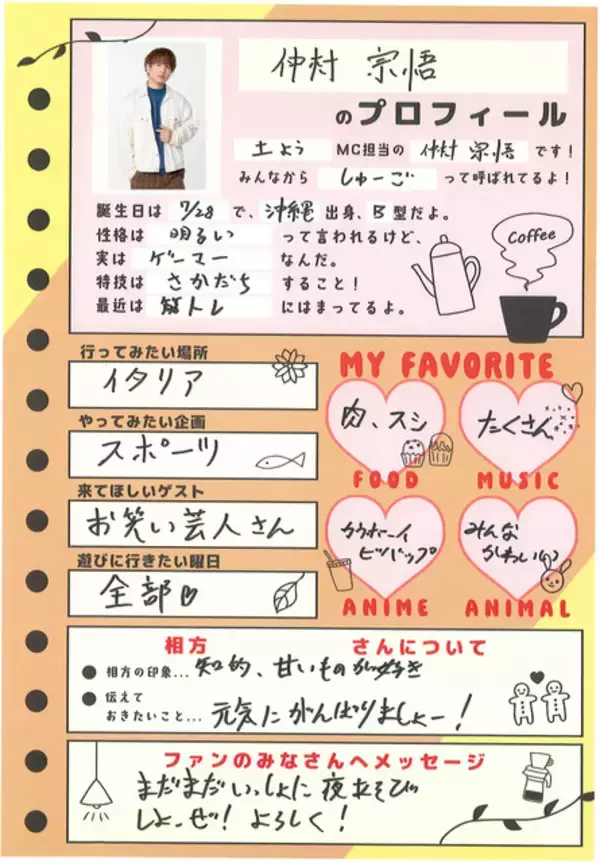 仲村 宗悟
のプロフィール
土よう MC担当の 仲村 宗悟 です!
みんなから しゅーご って呼ばれてるよ!
誕生日は 7/28 で、沖縄 出身、B 型だよ。
性格は 明るい って言われるけど、
実は ゲーマー なんだ。
特技は さかだち すること!
最近は 筋トレ にはまってるよ。
Coffee
行ってみたい場所
イタリア
やってみたい企画
スポーツ
来てほしいゲスト
お笑い芸人さん
遊びに行きたい曜日
全部♡
MY FAVORITE
肉、スシ
FOOD
たくさん
MUSIC
カウボーイ
ビバップ
ANIME
みんな
かわいい
ANIMAL
相方 さんについて
● 相方の印象... 知的、甘いものが好き
● 伝えて
おきたいこと... 元気にがんばりましょー!
ファンのみなさんへメッセージ
まだまだいっしょに夜あそび
しよーぜ! よろしく!